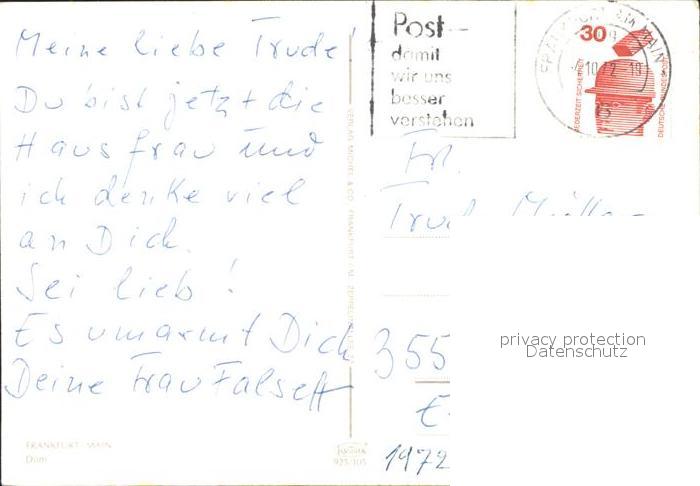 Meine liebe Trude!
Du bist jetzt die
Hausfrau und
ich denke viel
an Dich.
Sei lieb!
Es umarmt Dich
Deine Frau Falseft
FRANKFURT/MAIN
Dom
925/105
VERLAG MICHEL & CO. FRANKFURT/M.
Post-
damit
wir uns
besser
verstehen
FRANKFURT AM MAIN
10.72.19
30
JEDERZEIT SICHERHEIT
DEUTSCHE BUNDESPOST
Frl.
355
1972
privacy protection
Datenschutz